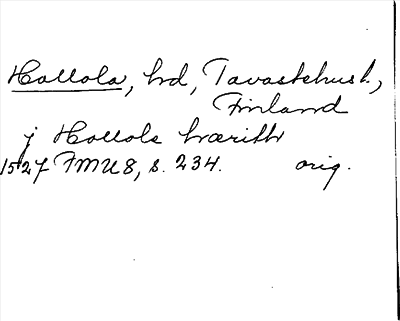 Hollola, hd, Tavastehusl.,
Finland
j Hollola hærith
1527 FMU8, s. 234. orig.